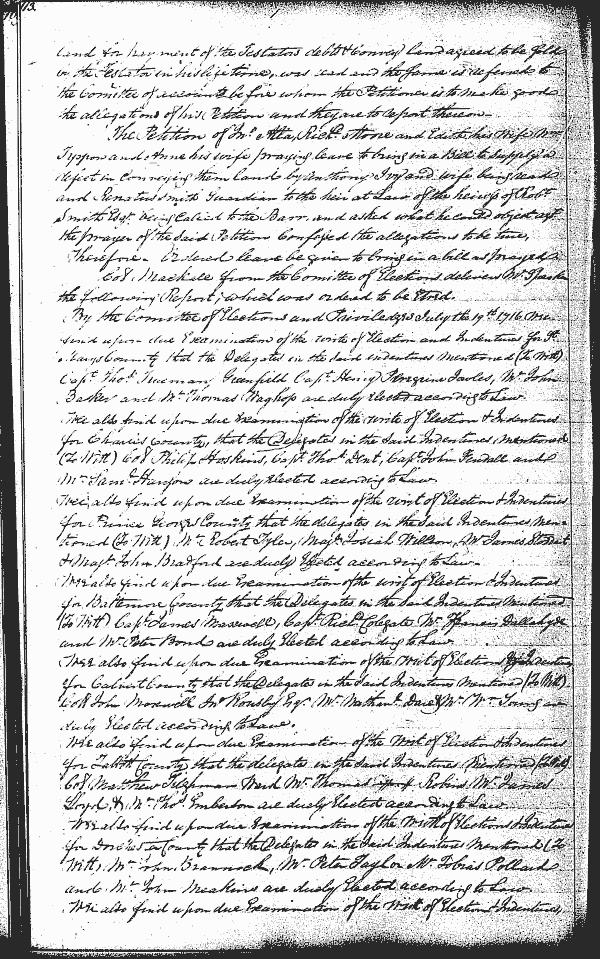 73.
land for payment of the Testators debts & Convey land agreed to be Sold
by the Testator in his life time, was read and the same is referred to
the Comittee of accounts before whom the Petitioner is to make good
the allegations of his Petition and they are to report thereon
The Petition of Jno Atta, Richd Moore and Edith his Wife Wm
Tippon and Anne his wife praying leave to bring in a Bill to Supply a
defect in conveying them land by Anthony Ivy and wife being read
and Renatus Smith Guardian to the heir at Law of the heirs of Robt
Smith Esqr. being Called to the Barr, and asked what he could object agt
the prayer of the said Petition Confessed the allegations to be true,
Therefore Ordered leave be given to bring in a bill as prayed
Coll Mackall from the Comittee of Elections delivers Mr Speaker
the following Report; which was ordered to be Entred.
By the Comittee of Elections and Priviledges July the 19th 1716 We
find upon due Examination of the writs of Election and Indentures for St
Marys County that the Delegates in the said indentures Mentioned (To Witt)
Capt. Thos. Trueman Greenfield Capt. Henry Peregrine Jowles, Mr. John
Baker and Mr Thomas Waghop are duly Elected according to Law
We also find upon due Examination of the writs of Election & Indentures
for Charles County, that the Delegates in the Said Indentures, mentioned
(To Witt) Coll Philip Hoskins, Capt Thos. Dent, Capt John Fendall and
Mr Saml. Hanson are duly Elected according to Law
We also find upon due Examination of the writ of Election & Indentures
for Prince Georges County that the delegates in the Said Indentures Men-
tioned (To Witt) Mr Robert Tyler, Majr Josiah Willson, Mr James Stoddart
& Majr John Bradford are duely Elected according to Law.
We also find upon due Examination of the writ of Election & Indentures
for Baltemore County that the Delegates in the Said Indentures Mentioned
(To Witt) Capt James Maxwell, Capt Richd Colegate Mr Francis Dallahyde
and Mr Peter Bond are duly Elected according to Law
We also find upon due Examination of the Writ of Election & Indentures
for Calvert County, that the Delegates in the said Indentures Mentioned (To Witt)
Coll John Mackall Jno Rousby Esqr. Mr. Nathanl. Dare & Mr Wm Young are
duly Elected according to Law.
We also find upon due Examination of the Writ of Election & Indentures
for Talbott County that the delegates in the Said Indentures Mentioned (To Witt)
Coll Mathew Tilghman Ward Mr Thomas Robins Mr James
Lloyd, & Mr Thos Emberson are duely Elected according to Law
We also find upon due Examination of the Writ of Elections & Indentures
for Dorchester County that the Delegates in the said Indentures Mentioned (To
Witt) Mr John Brannock, Mr Peter Taylor Mr Tobias Pollard
and Mr John Meakins are duely Elected according to Law
We also find upon due Examination of the Writ of Election & Indentures,